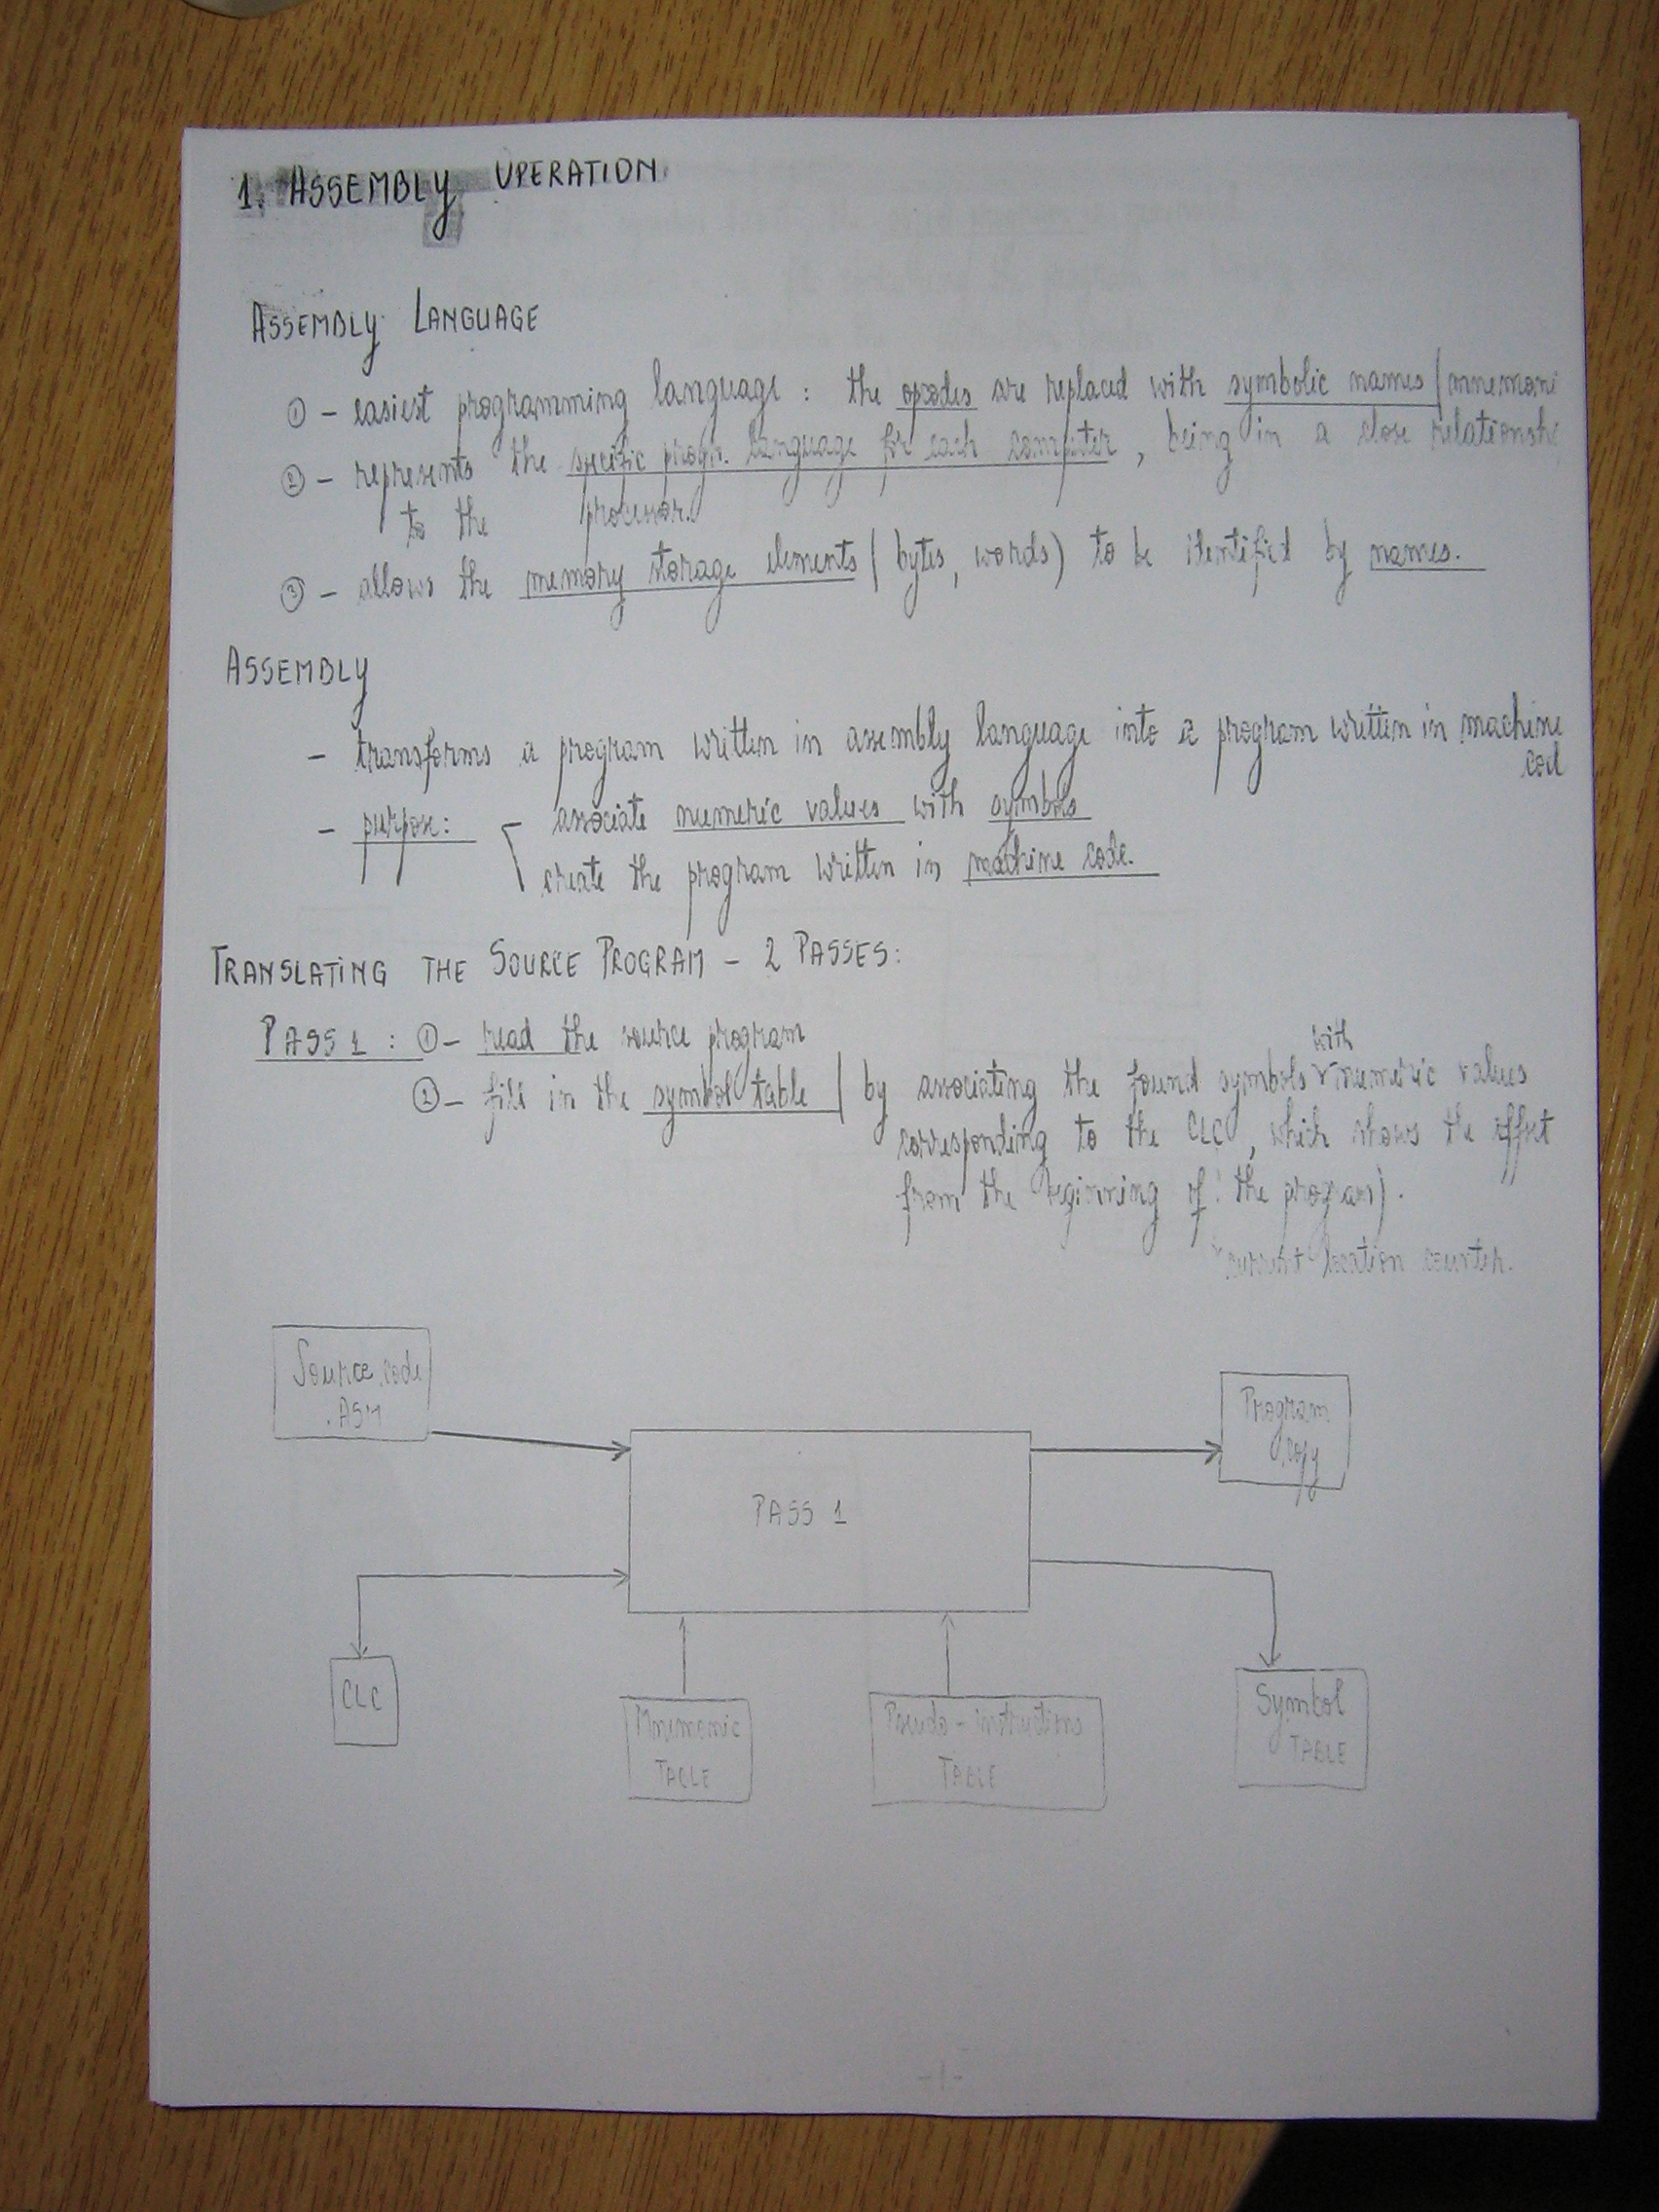 1. ASSEMBLY OPERATION
ASSEMBLY LANGUAGE
① - easiest programming language : the opcodes are replaced with symbolic names (mnemoni
② - represents the specific progr. language for each computer, being in a close relationshi
to the processor.
③ - allows the memory storage elements ( bytes, words) to be identified by names.
ASSEMBLY
- transforms a program written in assembly language into a program written in machine
cod
- purpose: associate numeric values with symbols
create the program written in machine code.
TRANSLATING THE SOURCE PROGRAM - 2 PASSES:
PASS 1 : ① - read the source program
with
② - fill in the symbol table ( by associating the found symbols numeric values
corresponding to the CLC, which shows the offset
from the beginning of the program).
current location counter.
Source code
.ASM
Program
copy
PASS 1
CLC
Mnemonic
TABLE
Pseudo - instructions
TABLE
Symbol
TABLE
-1-